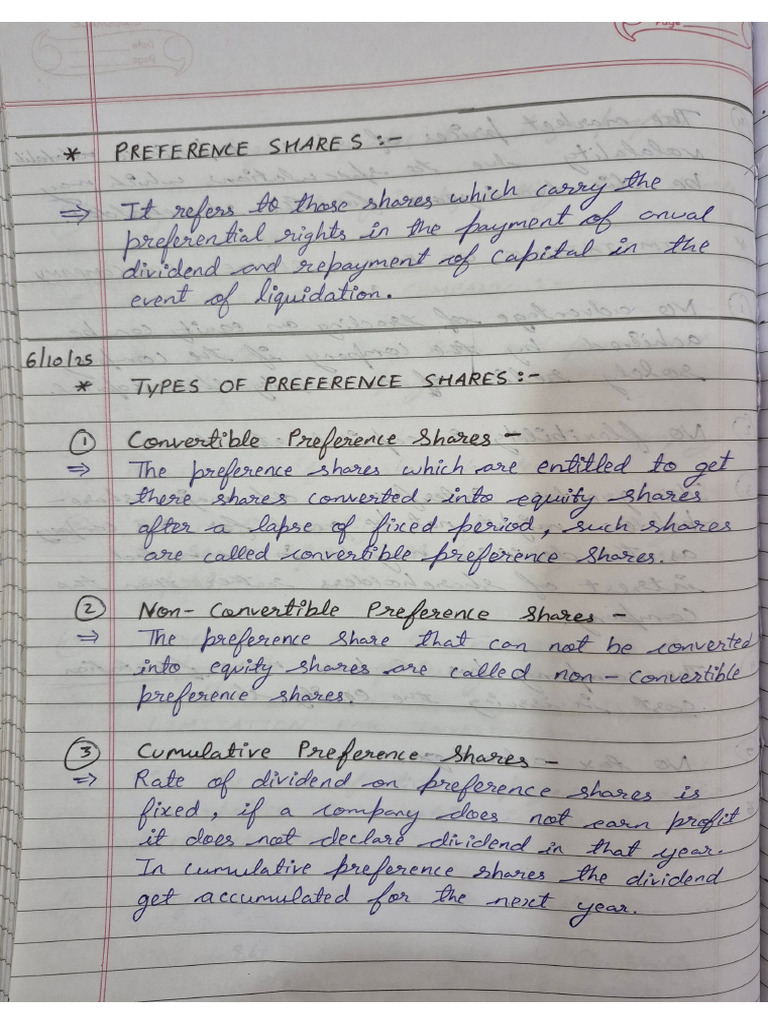 Page
* PREFERENCE SHARES :-
⇒ It refers to those shares which carry the
preferential rights in the payment of anual
dividend and repayment of capital in the
event of liquidation.
6/10/25
* TYPES OF PREFERENCE SHARES :-
① Convertible Preference Shares -
⇒ The preference shares which are entitled to get
there shares converted into equity shares
after a lapse of fixed period, such shares
are called convertible preference shares.
② Non-Convertible Preference Shares -
⇒ The preference share that can not be converted
into equity shares are called non-convertible
preference shares.
③ Cumulative Preference Shares -
⇒ Rate of dividend on preference shares is
fixed, if a company does not earn profit
it does not declare dividend in that year.
In cumulative preference shares the dividend
get accumulated for the next year.